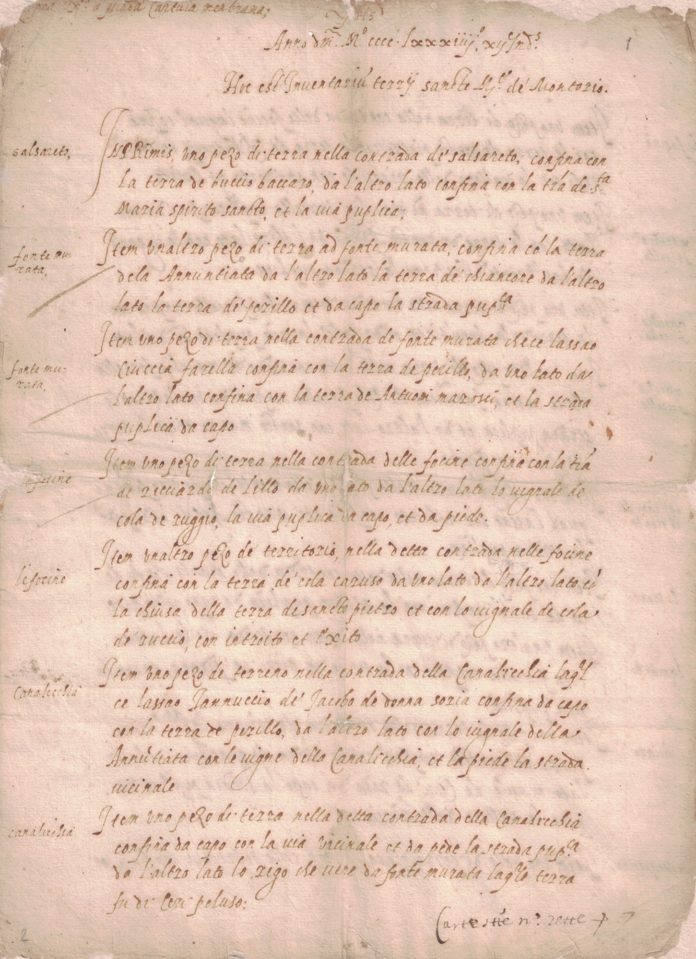 Cartula membrana,
Anno dñi Mº cccc lxxxiiij. xij Indˢ.
Hoc est Inventariũ terrȝ sancte Mᵉ de Montorio.
1
salsareto,
INPRimis, uno pezo di terra nella contrada de salsareto, confina con
la terra de buccio baccaro, da l'altro lato confina con la tr̃a de Sᵗᵃ
Maria spirito sancto, et la uia puplica;
fonte mu-
rata,
Item unaltro pezo di terra ad fonte murata, confina cõ la terra
dela Annuntiata da l'altro lato la terra de chiancore da l'altro
lato la terra de perillo et da capo la strada pupᶜᵃ
fonte mu-
rata,
Item uno pezo di terra nella contrada de fonte murata che ce lassao
Ciuccia farella confina con la terra de perillo, da uno lato da
l'altro lato confina con la terra de Antuoni marosci, et la strada
puplica da capo
le focine
Item uno pezo di terra nella contrada delle focine confina con la tr̃a
de ricciardo de Lillo da uno lato da l'altro lato lo uignale de
cola de ruggio, la uia puplica da capo, et da piede.
le focine
Item unaltro pezo de territorio, nella detta contrada nelle focine
confina con la terra de cola caruso da uno lato da l'altro lato cõ
la chiusa della terra di sancto pietro et con lo uignale de cola
de ruccio, con introito et exito
Canalicchia
Item uno pezo di terreno nella contrada della Canalicchia laqˡᵉ
ce lassao Iannuccio de Jacobo de donna soria confina da capo
con la terra de perillo, da l'altro lato con lo uignale della
Annũtiata con le uigne della Canalicchia, et la piede la strada
uicinale
canalicchia
Item uno pezo di terra nella detta contrada della Canalicchia
confina da capo con la uia uicinale et da pede la strada pupᶜᵃ
da l'altro lato lo rigo che uene da fonte murata laqˡᵉ terra
fu di peluso:
2
Carte scritte nº. sette 7